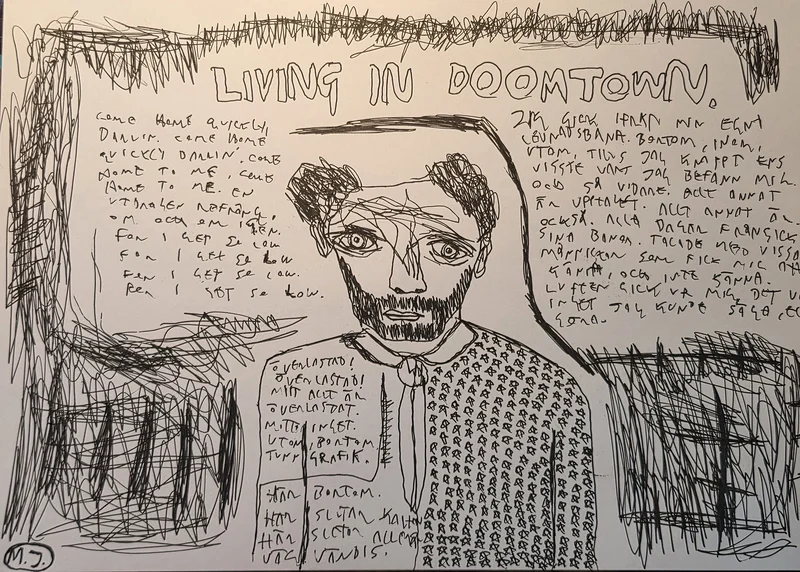 LIVING IN DOOMTOWN.
COME HOME QUICKLY,
DARLIN. COME HOME
QUICKLY DARLIN. COME
HOME TO ME, COME
HOME TO ME. EN
UTDRAGEN REFRÄNG,
OM OCH OM IGEN.
FOR I GET SO LOW
FOR I GET SO LOW
FOR I GET SO LOW.
FOR I GET SO LOW.
JAG GICK IFRÅN MIN EGNA
LEVNADSBANA. BORTOM, INOM,
UTOM, TILLS JAG KNAPPT ENS
VISSTE VART JAG BEFANN MIG.
OCH SÅ VIDARE. ALLT ANNAT
ÄR UPPTAGET. ALLT ANNAT ÄR
OCKSÅ. ALLA DAGAR FRANGICK
SINA BANOR. TALADE MED VISSA
MÄNNISKOR SOM FICK MIG ATT
KÄNNA, OCH INTE KÄNNA.
LUFTEN GICK UR MIG, DET VAR
INGET JAG KUNDE SÄGA, EL
GÖRA.
ÖVERLASTAD!
ÖVERLASTAD!
MITT ALLT ÄR
ÖVERLASTAT.
MITT INGET.
UTOM, BORTOM
TUNN GRAFIK.
HÄR BORTOM.
HÄR SLUTAR
HÄR SLUTAR
VÄG VANDIS.
M.J.